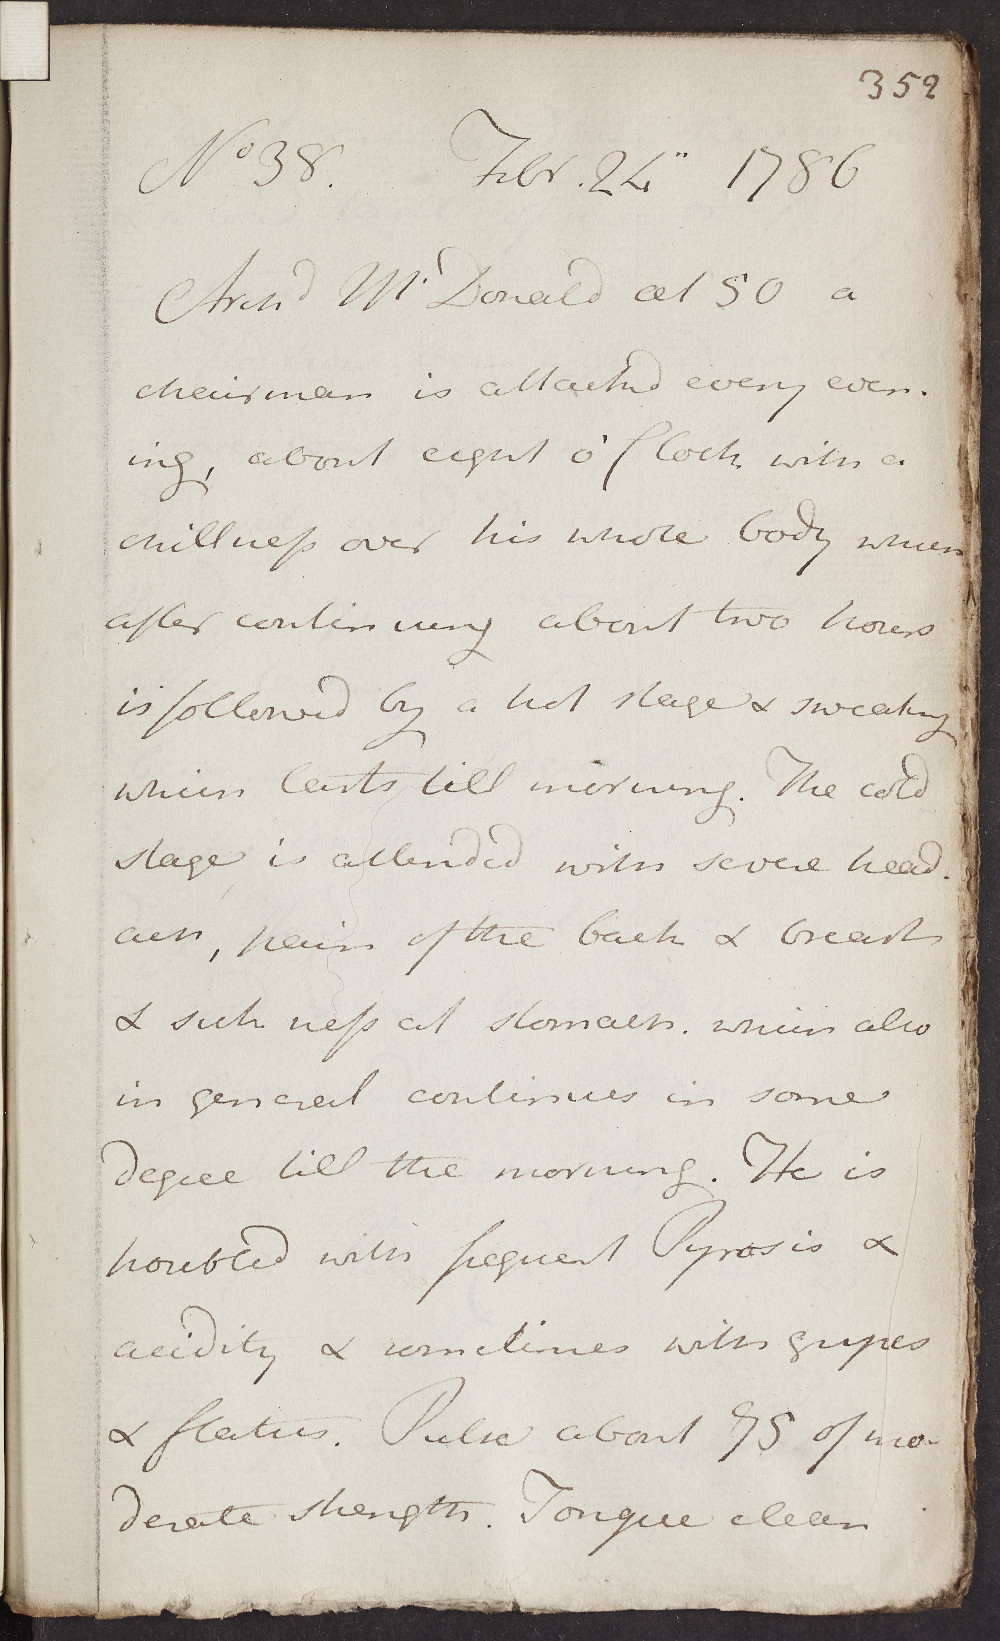 352
No 38. Febr. 24" 1786
Archd McDonald aet 50 a
chairman is attackd every even-
ing, about eight o'Clock with a
chillness over his whole body which
after continuing about two hours
is followed by a hot stage & sweating
which lasts till morning. The cold
stage is attended with severe head-
ach, pain of the back & breast
& sickness at stomach. which also
in general continues in some
degree till the morning. He is
troubled with frequent Pyrosis &
acidity & sometimes with gripes
& flatus. Pulse about 75 of mo-
derate strength. Tongue clean